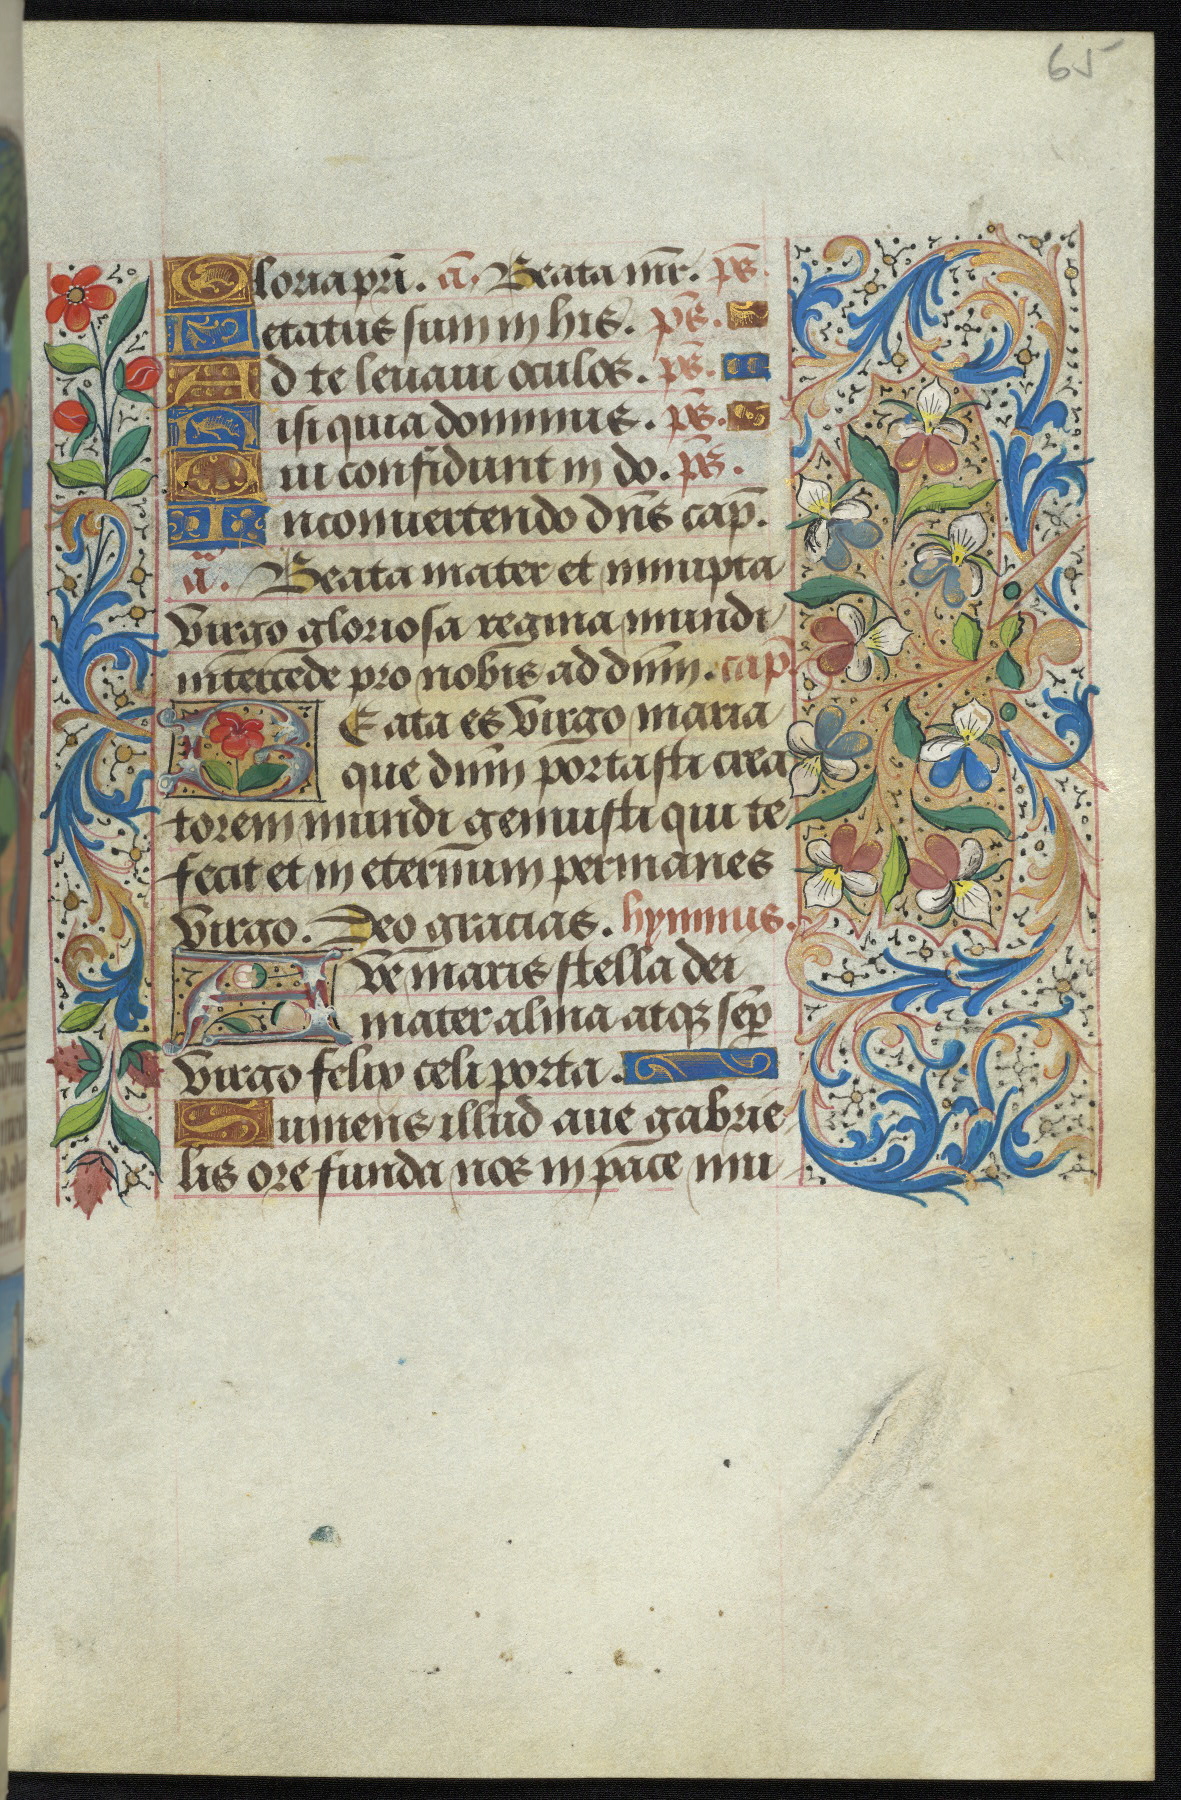 65
Gloria pri̅. a̅. Beata mr̅. ps̅.
Letatus sum in his. ps̅.
Ad te levavi oculos. ps̅.
Nisi quia dominus. ps̅.
Qui confidunt in do. ps̅.
In convertendo dn̅s cap̅.
a̅. Beata mater et innupta
virgo gloriosa regina mundi
intercede pro nobis ad dn̅m. cap̅.
BEata es virgo maria
que dn̅m portasti crea
torem mundi genuisti qui te
fecit et in eternum permanes
virgo. Deo gracias. hymnus.
AVe maris stella dei
mater alma atqꝫ semp̅
virgo felix celi porta.
Sumens illud ave gabrie
lis ore funda nos in pace mu